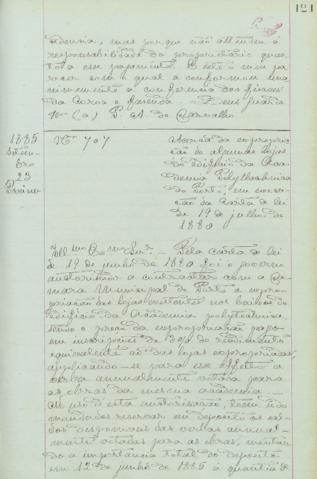 121
demia, mas porque não attendeu á
responsabilidade do proprietario quan
to a esse pagamento. E este o meu pa
recer com o qual se conformou una
nimemente a conferencia dos fiscaes
da Corôa e fazenda - D. em guarda
1885
Setem
bro
23
Reino
Nº 707
Ácerca da expropria
ção de algumas lojas
do edificio da Aca
demia Polytechnica
do Porto, em execu
ção da Carta de lei
de 19 de julho de
1880
Illmo Exmo Snr. - Pela carta de lei
de 19 de junho de 1880 foi o governo
autorisado a contractar com a Ca
mara Municipal do Porto a expro
priação das lojas existentes nos baixos do
edificio da Academia polytechnica,
sendo o preço da expropriação pago
em inscripções de egual rendimento
equivalente ao das lojas expropriadas,
applicando-se para esse effeito a
verba annualmente votada para
as obras da mesma academia.
sido
mandados reservar em deposito os sal
dos disponiveis das verbas annual
mente votadas para as obras, montan
do a importancia total do deposito
em 12 de junho de 1885 á quantia de